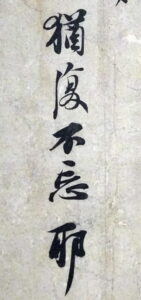 猶復不忘耶